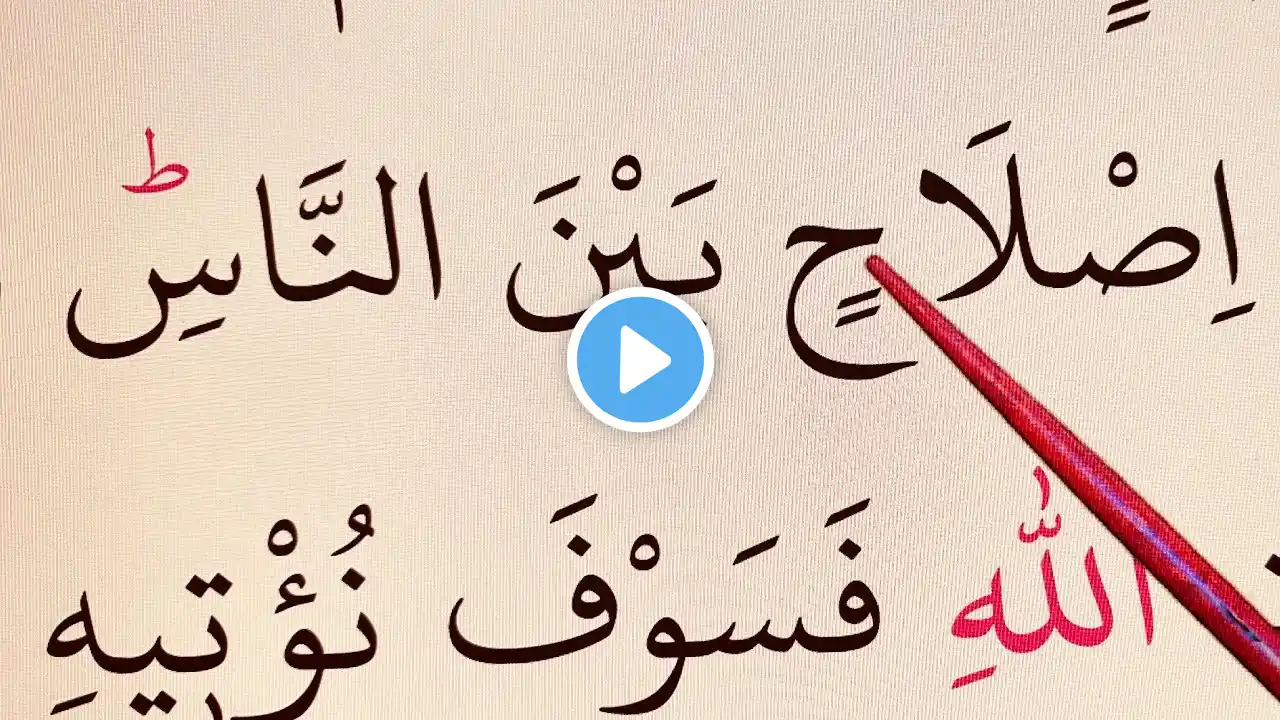 اِصْلَاحٍۭ بَيْنَ النَّاسِ ؕ
اللّٰهِ فَسَوْفَ نُؤْتِيهِ